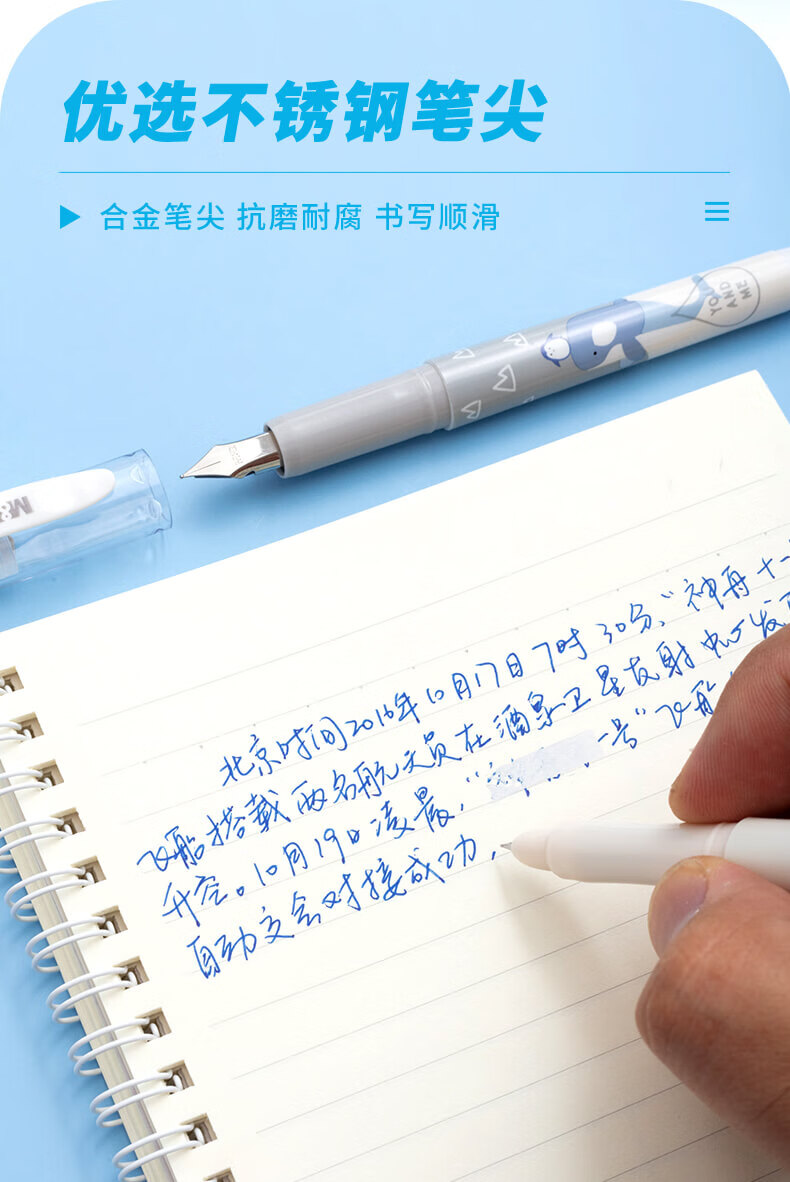 优选不锈钢笔尖
合金笔尖 抗磨耐腐 书写顺滑
YOU
AND
ME
M&
北京时间2016年10月17日7时30分、“神舟十一
飞船搭载两名航天员在酒泉卫星发射中心发
升空。10月19日凌晨，“神 一号”飞船
自动交会对接成功，